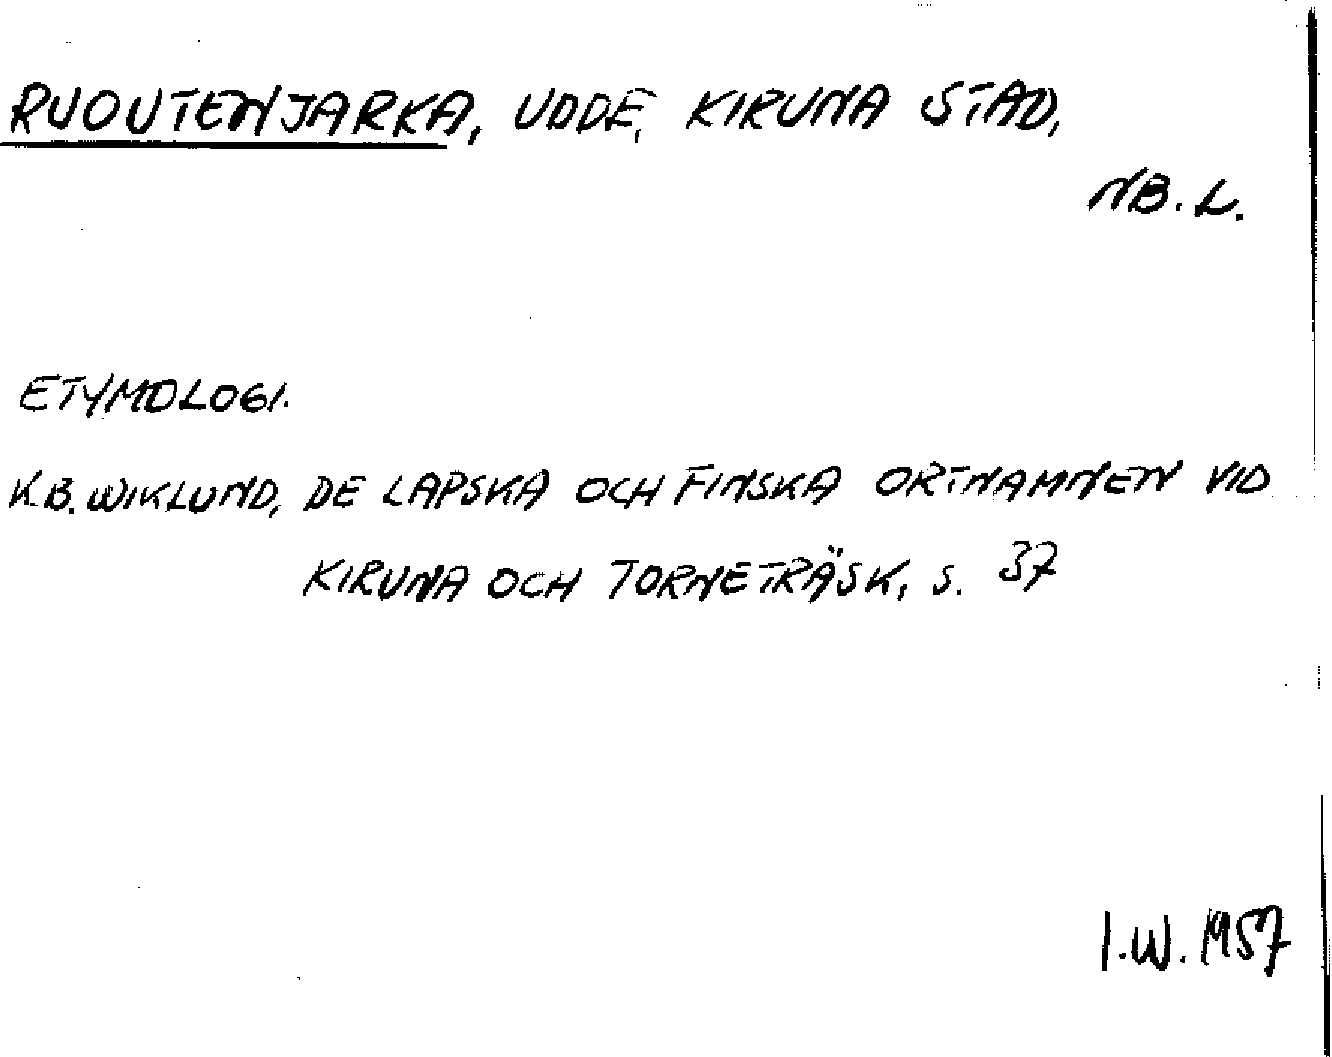 RUOUTENJARKA, UDDE, KIRUNA STAD,
NB. L.
ETYMOLOGI.
K.B. WIKLUND, DE LAPSKA OCH FINSKA ORTNAMNEN VID
KIRUNA OCH TORNETRÄSK, S. 37
I.W. 1957